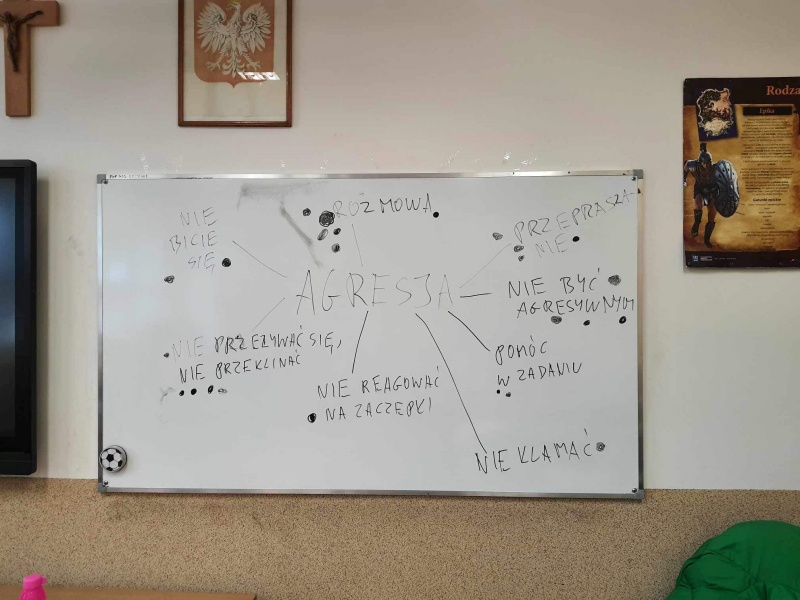 Rodza
Epika
NIE
BICIE
SIĘ
ROZMOWA
PRZEPRASZA-
NIE
AGRESJA
NIE BYĆ
AGRESYWNYM
NIE PRZEZYWAĆ SIĘ,
NIE PRZEKLINAĆ
NIE REAGOWAĆ
NA ZACZEPKI
POMÓC
W ZADANIU
NIE KŁAMAĆ